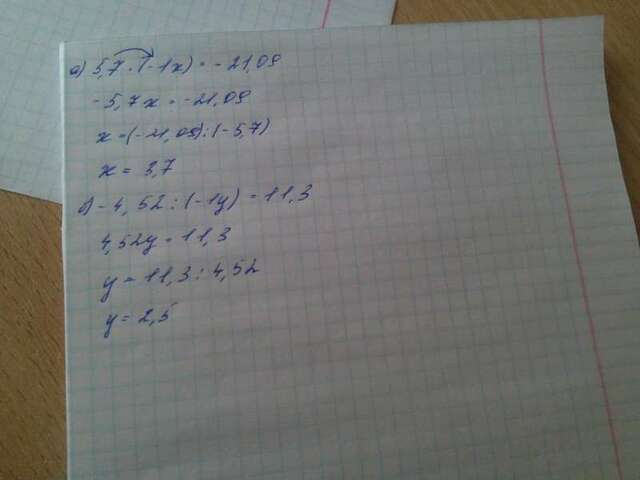 а) 5,7 · (-1x) = -21,09
-5,7x = -21,09
x = (-21,09) : (-5,7)
x = 3,7
б) -4,52 : (-1y) = 11,3
4,52y = 11,3
y = 11,3 : 4,52
y = 2,5